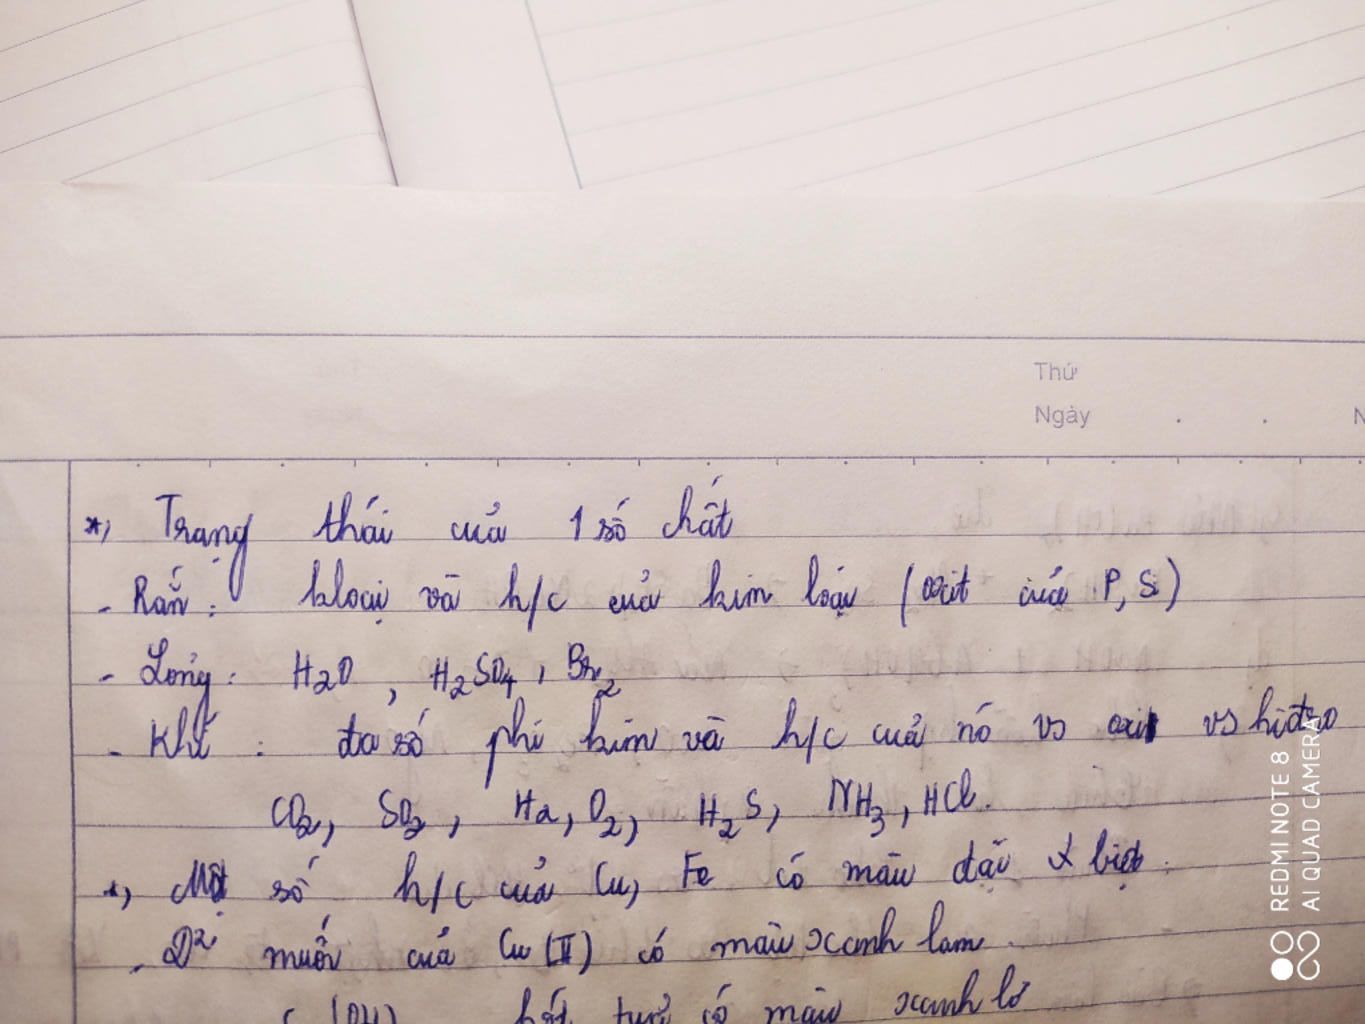 Thứ
Ngày . . N
*, Trạng thái của 1 số chất
- Rắn : kloại và h/c của kim loại (oxit của P, Si)
- Lỏng : H2O , H2SO4 , Br2
- Khí : đa số phi kim và h/c của nó vs oxi vs hiđro
CO2, SO2, H2, O2, H2S, NH3, HCl.
*, Một số h/c của Cu, Fe có màu đặc biệt.
- D² muối của Cu (II) có màu xanh lam
(OH) kết tủa có màu xanh lơ
REDMI NOTE 8
AI QUAD CAMERA